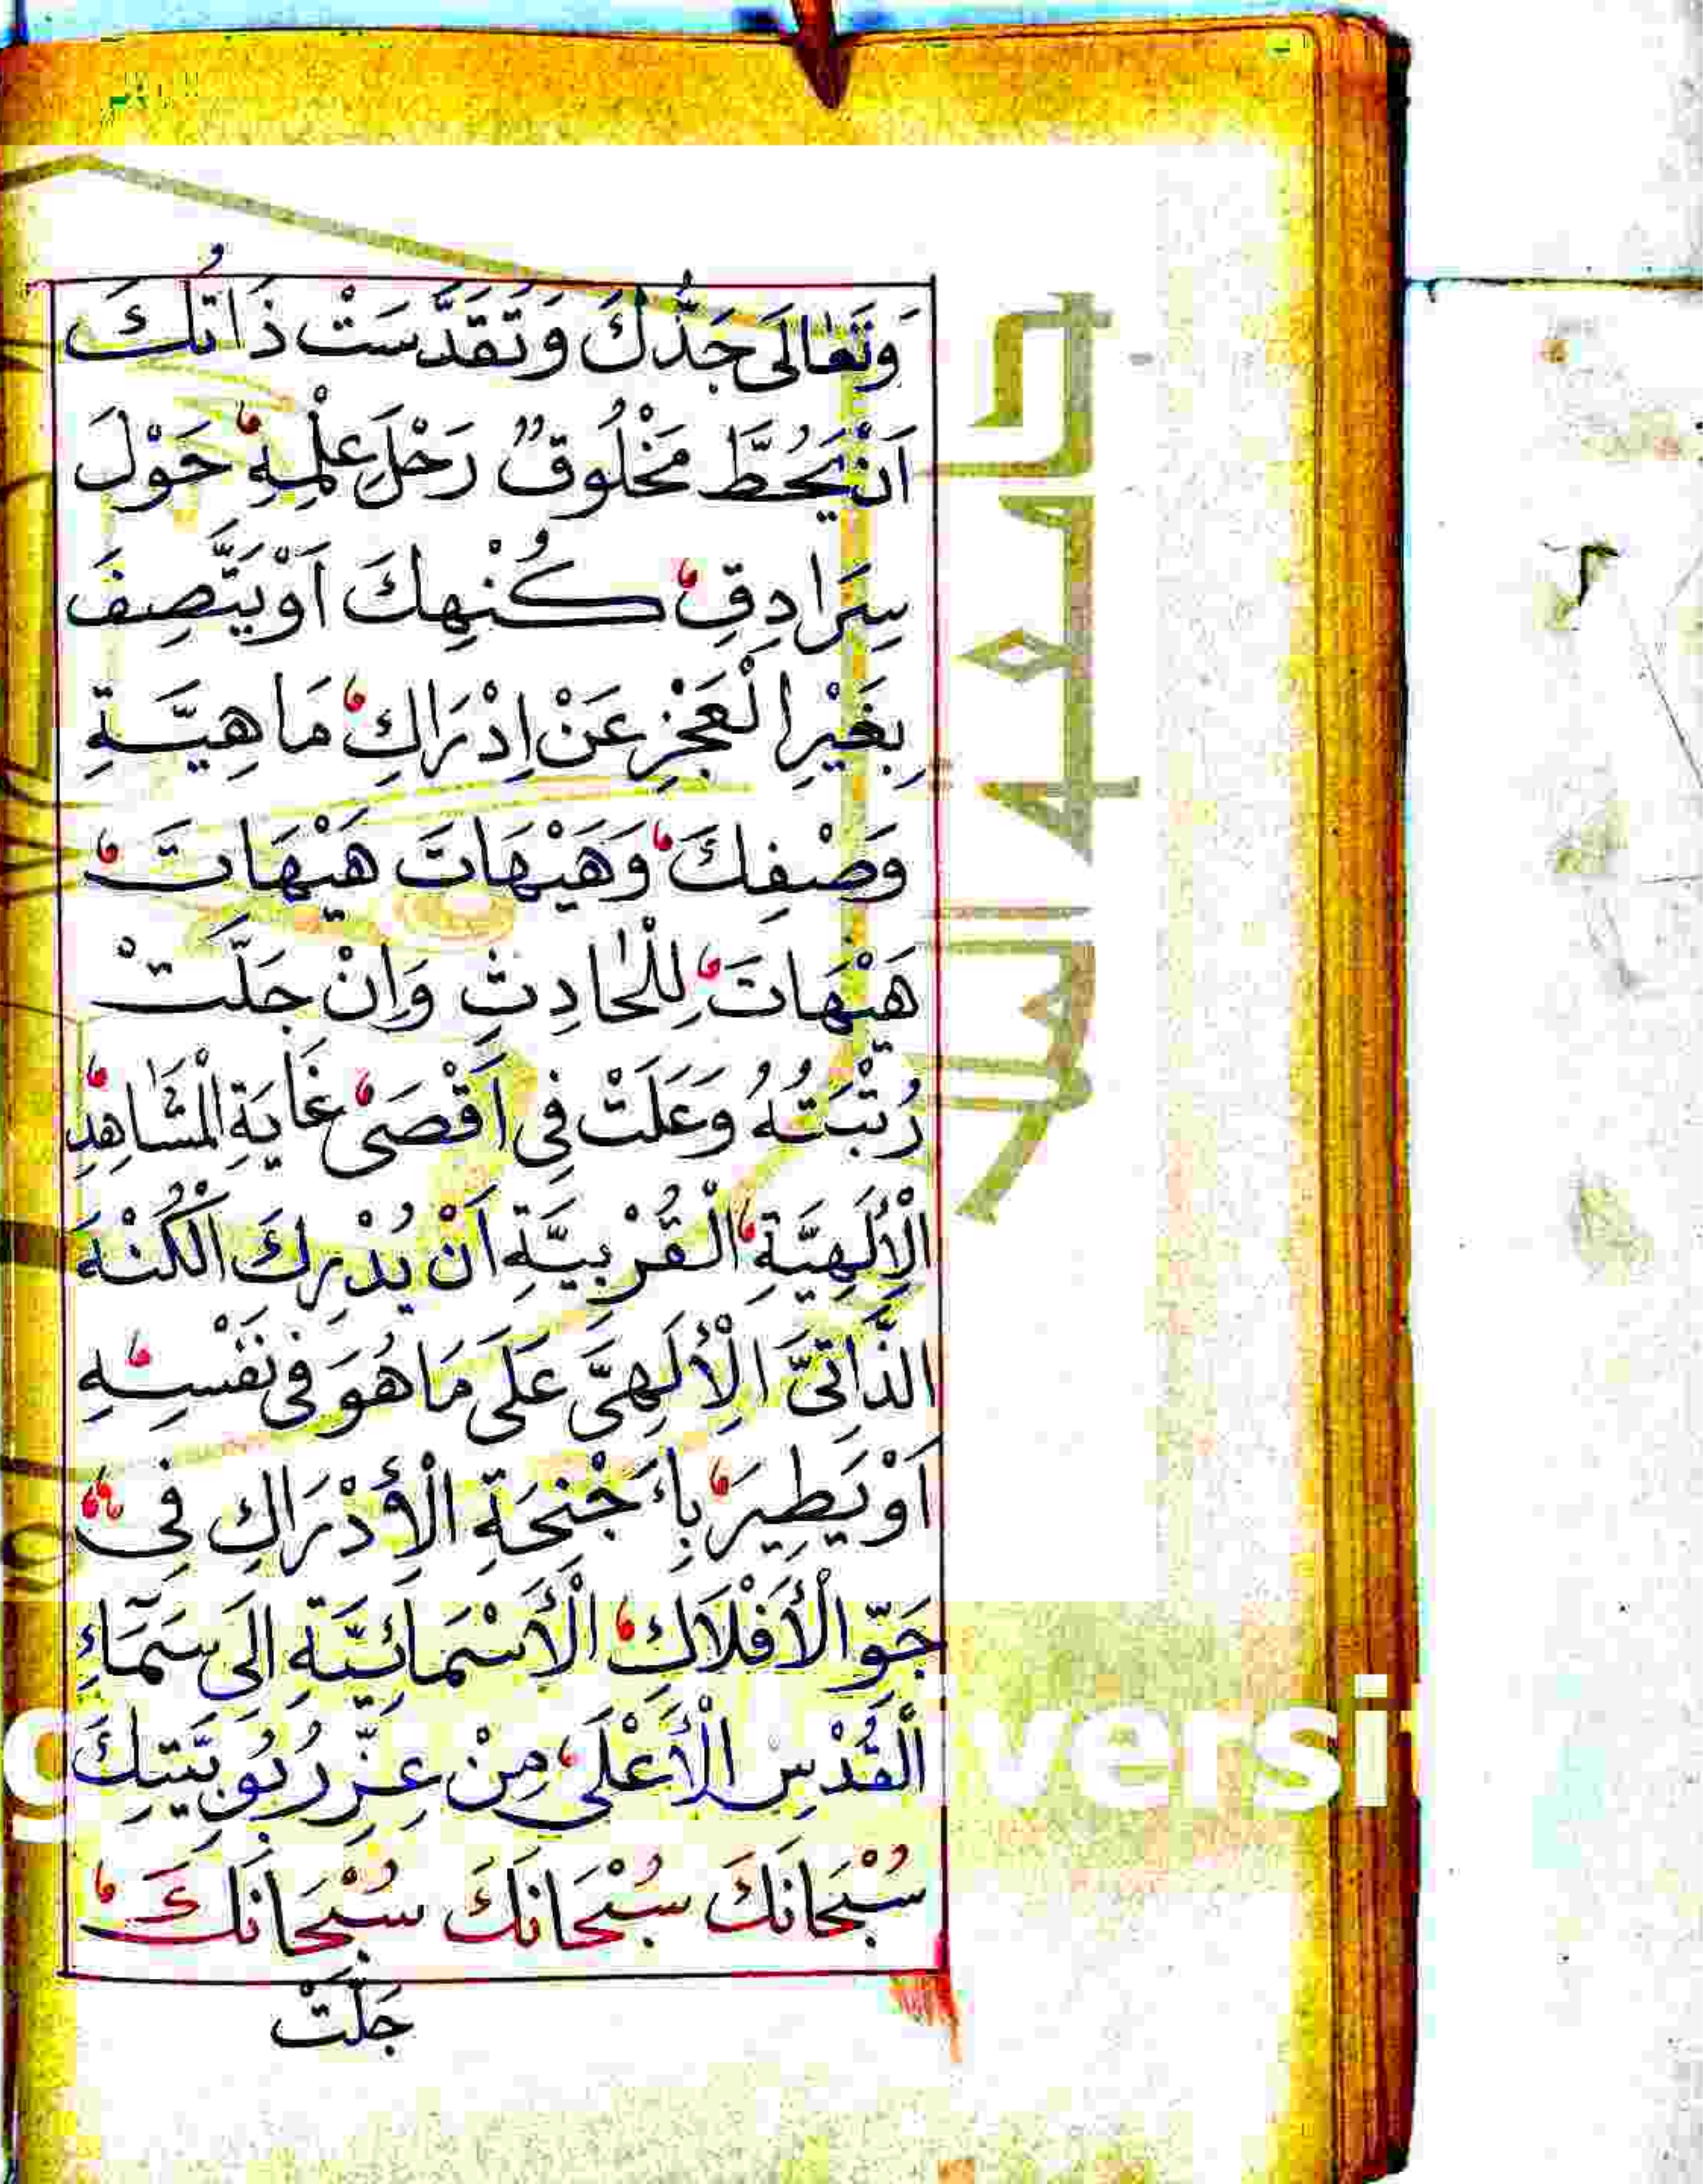 وَتَعَالَى جَدُّكَ وَتَقَدَّسَتْ ذَاتُكَ
اَنْ يَحُطَّ مَخْلُوقٌ رَحْلَ عِلْمِهِ حَوْلَ
سِرَادِقِ كُنْهِكَ اَوْ يَتَّصِفَ
بِغَيْرِ الْعَجْزِ عَنْ اِدْرَاكِ مَاهِيَّةِ
وَصْفِكَ وَهَيْهَاتَ هَيْهَاتَ
هَيْهَاتَ لِلْحَادِثِ وَاِنْ جَلَّتْ
رُتْبَتُهُ وَعَلَتْ فِى اَقْصَى غَايَةِ الْمَشَاهِدِ
الْاِلَهِيَّةِ الْقُرْبِيَّةِ اَنْ يُدْرِكَ الْكُنْهَ
الذَّاتِىَّ الْاِلَهِىَّ عَلَى مَا هُوَ فِى نَفْسِهِ
اَوْ يَطِيرَ بِاَجْنِحَةِ الْأِدْرَاكِ فِى
جَوِّ الْأَفْلَاكِ الْأَسْمَائِيَّةِ اِلَى سَمَآءِ
الْقُدْسِ الْأَعْلَى مِنْ عِزِّ رُبُوبِيَّتِكَ
سُبْحَانَكَ سُبْحَانَكَ سُبْحَانَكَ
جَلَّتْ
versi